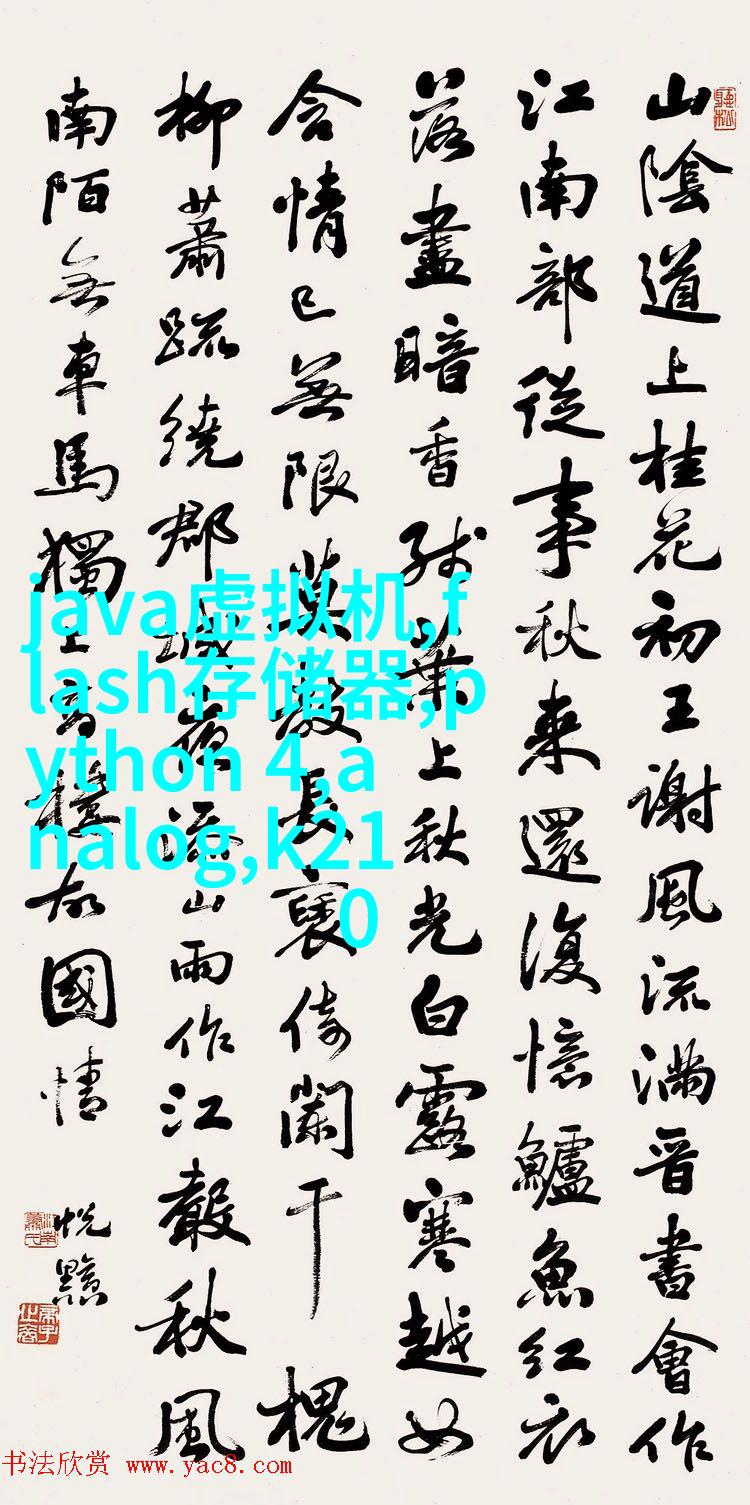 山陰道上桂花初王謝風流滿晉書會作
江南部從事秋來還復憶鱸魚紅衣
落盡暗香殘葉上秋光白露寒越女
含情已無限莫教長褏倚闌干 槐
柳蕭疏繞郡城夜添山雨作江聲秋風
南陌無車馬獨上高樓故國情
java虚拟机,f
lash存储器,p
ython 4,a
nalog,k21
0
书法欣赏 www.yac8.com